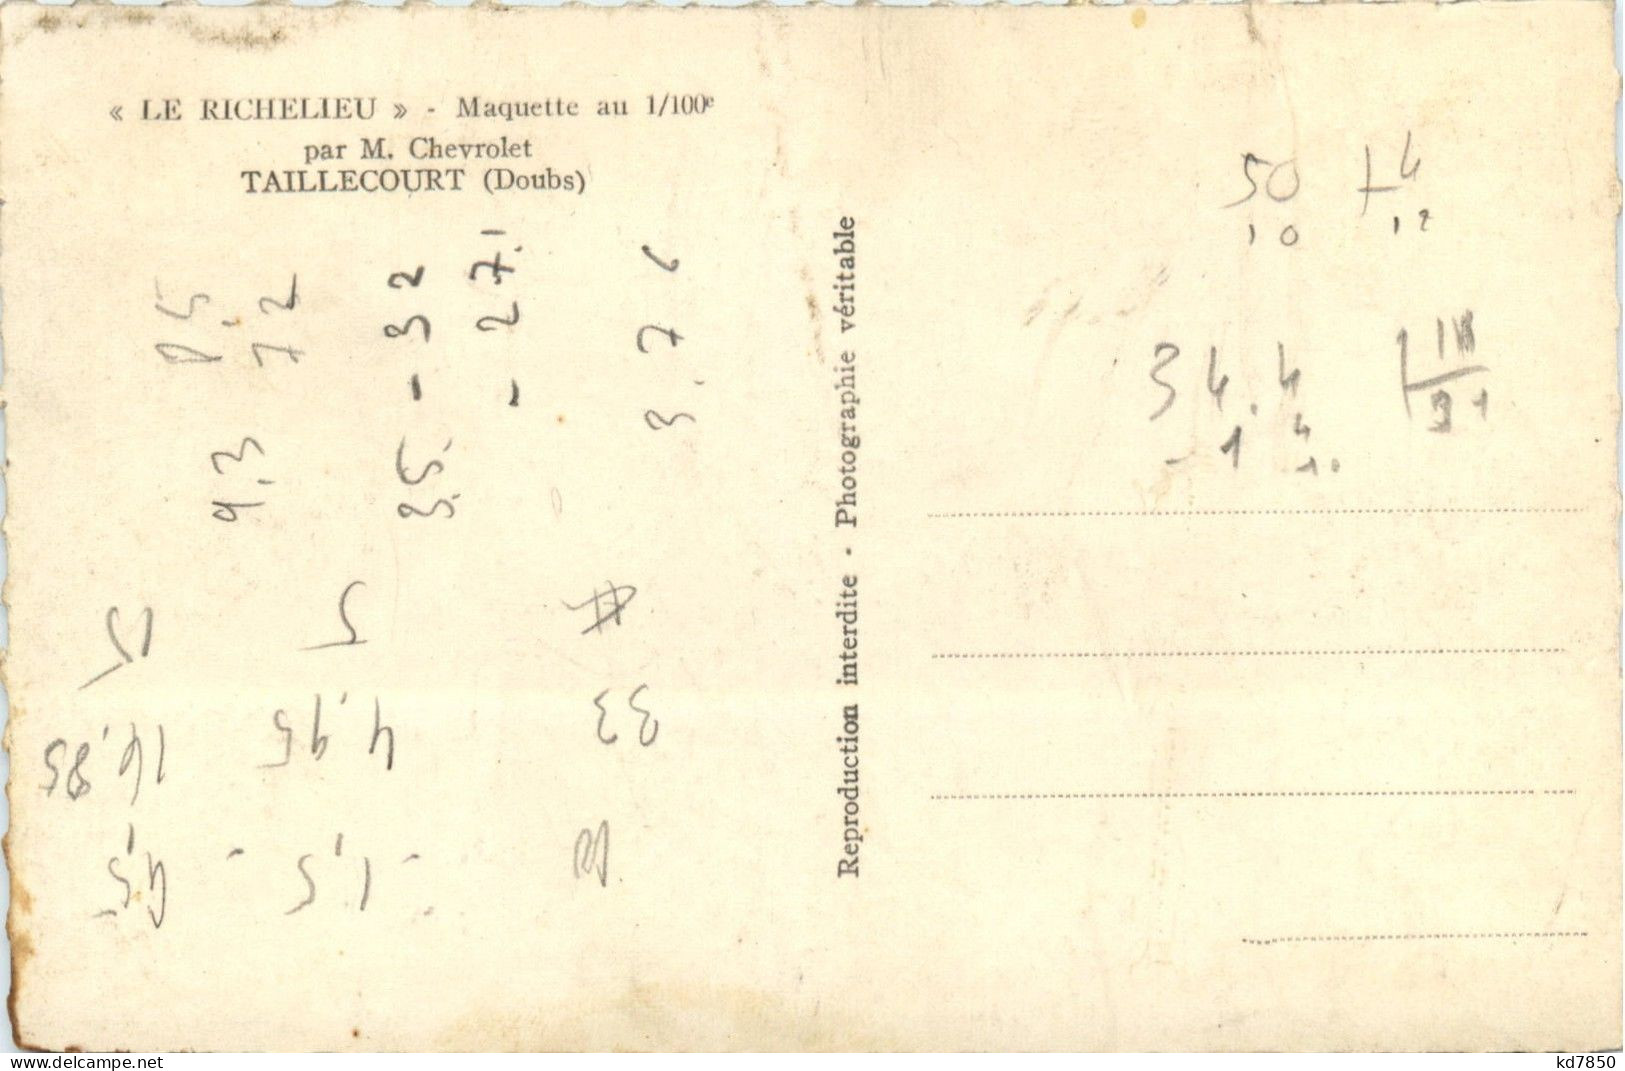 « LE RICHELIEU » - Maquette au 1/100e
par M. Chevrolet
TAILLECOURT (Doubs)
Reproduction interdite - Photographie véritable
50
10
4
12
34.4
8.5
7.2
9.3
- 32
- 27.1
35.
3.76
5
4,95
1,5
33
15
16,85
4,5
www.delcampe.net
kd7850